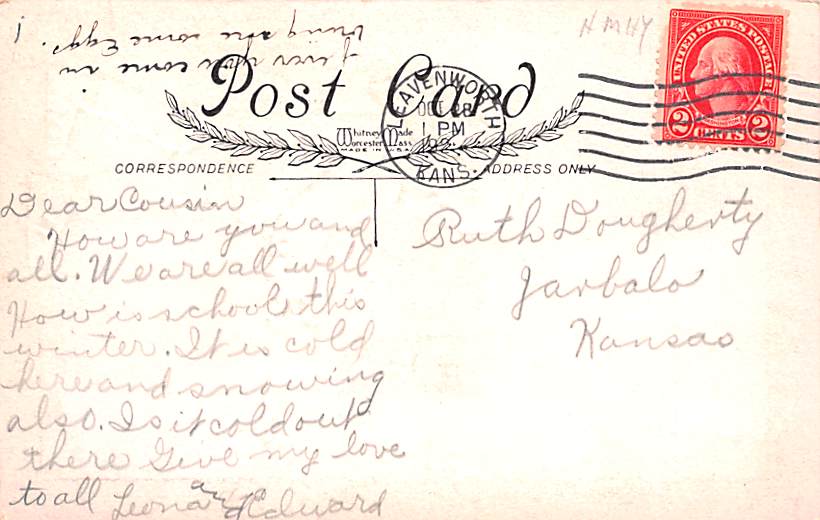 If ever you come in
bring me some Eggs.
1
H M H Y
UNITED STATES POSTAGE
2 CENTS 2
Post Card
LEAVENWORTH
OCT 28
1 PM
KANS.
Whitney Made
Worcester, Mass
MADE IN U.S.A.
CORRESPONDENCE
ADDRESS ONLY
Dear Cousin
How are you and
all. We are all well
How is school this
winter. It is cold
here and snowing
also. Is it cold out
there Give my love
to all Leona and Edward
Ruth Dougherty
Jarbalo
Kansas